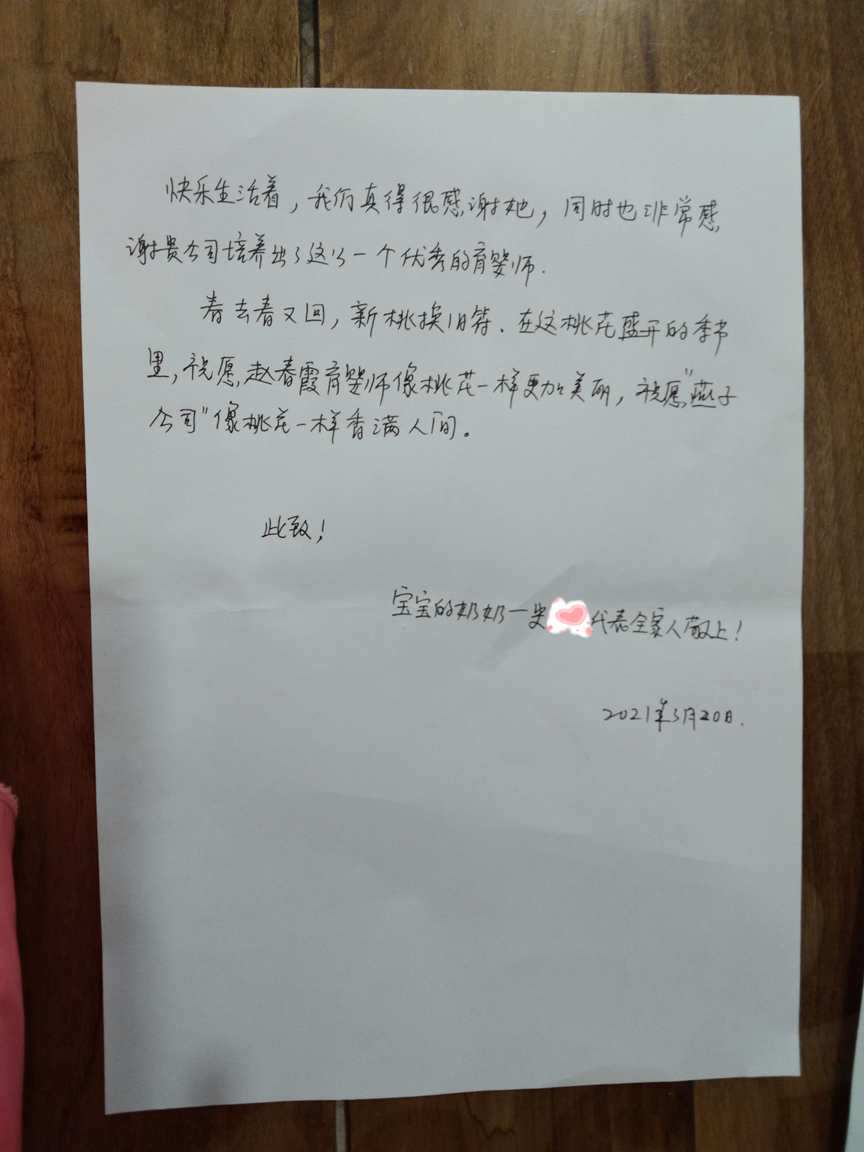 快乐生活着，我们真得很感谢她，同时也非常感
谢贵公司培养出了这么一个优秀的育婴师.
春去春又回，新桃换旧符. 在这桃花盛开的季节
里，祝愿赵春霞育婴师像桃花一样更加美丽，祝愿"燕子
公司"像桃花一样香满人间。
此致！
宝宝的奶奶一史 代表全家人敬上！
2021年3月20日.